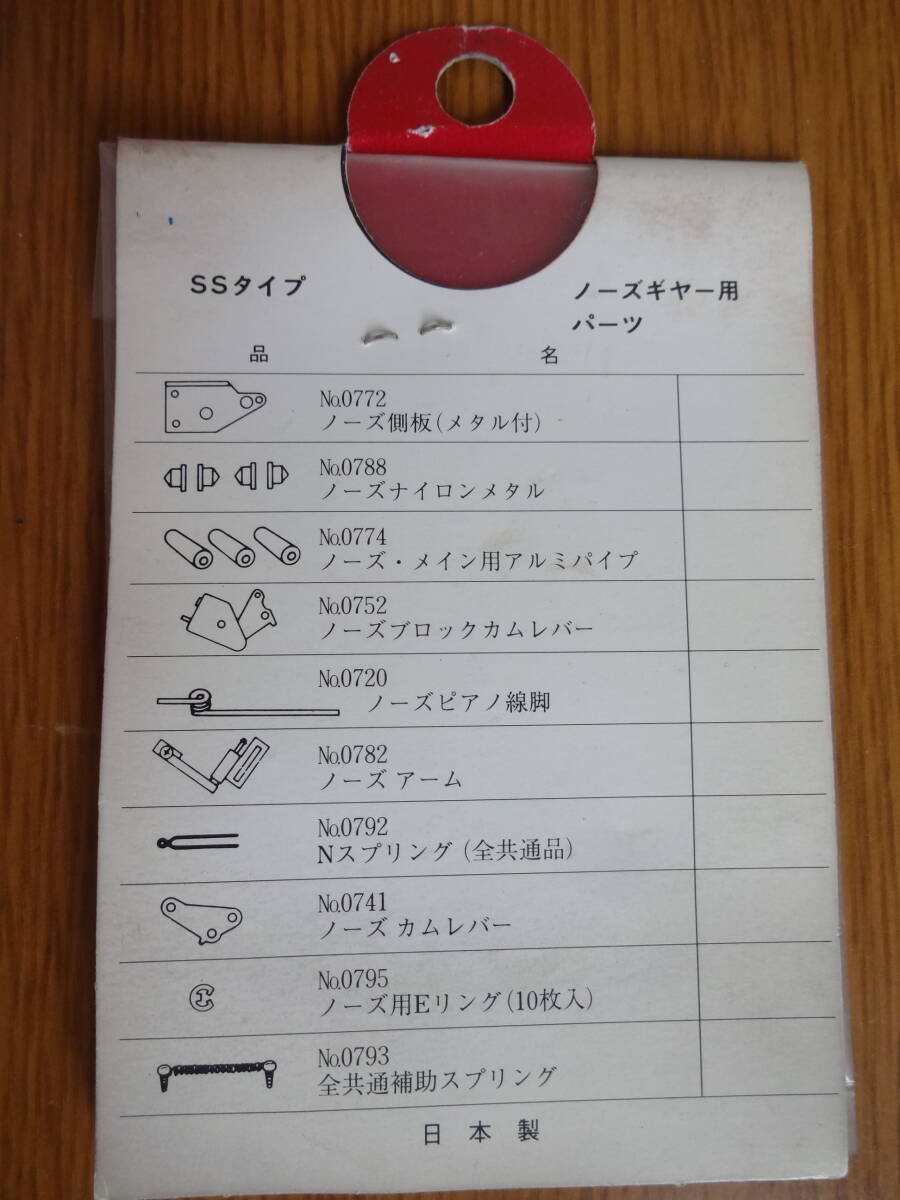 SSタイプ
ノーズギヤー用
パーツ
品 名
No.0772
ノーズ側板(メタル付)
No.0788
ノーズナイロンメタル
No.0774
ノーズ・メイン用アルミパイプ
No.0752
ノーズブロックカムレバー
No.0720
ノーズピアノ線脚
No.0782
ノーズ アーム
No.0792
Nスプリング(全共通品)
No.0741
ノーズ カムレバー
No.0795
ノーズ用Eリング(10枚入)
No.0793
全共通補助スプリング
日本製